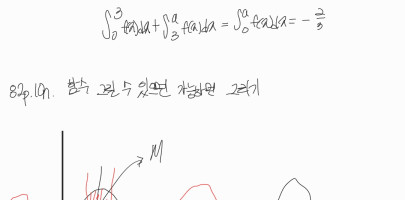 ∫₀³ f(x)dx + ∫₃ᵃ f(x)dx = ∫₀ᵃ f(x)dx = - 2/3
82p. 10n. 함수 그릴 수 있으면 가능하면 그리기
M